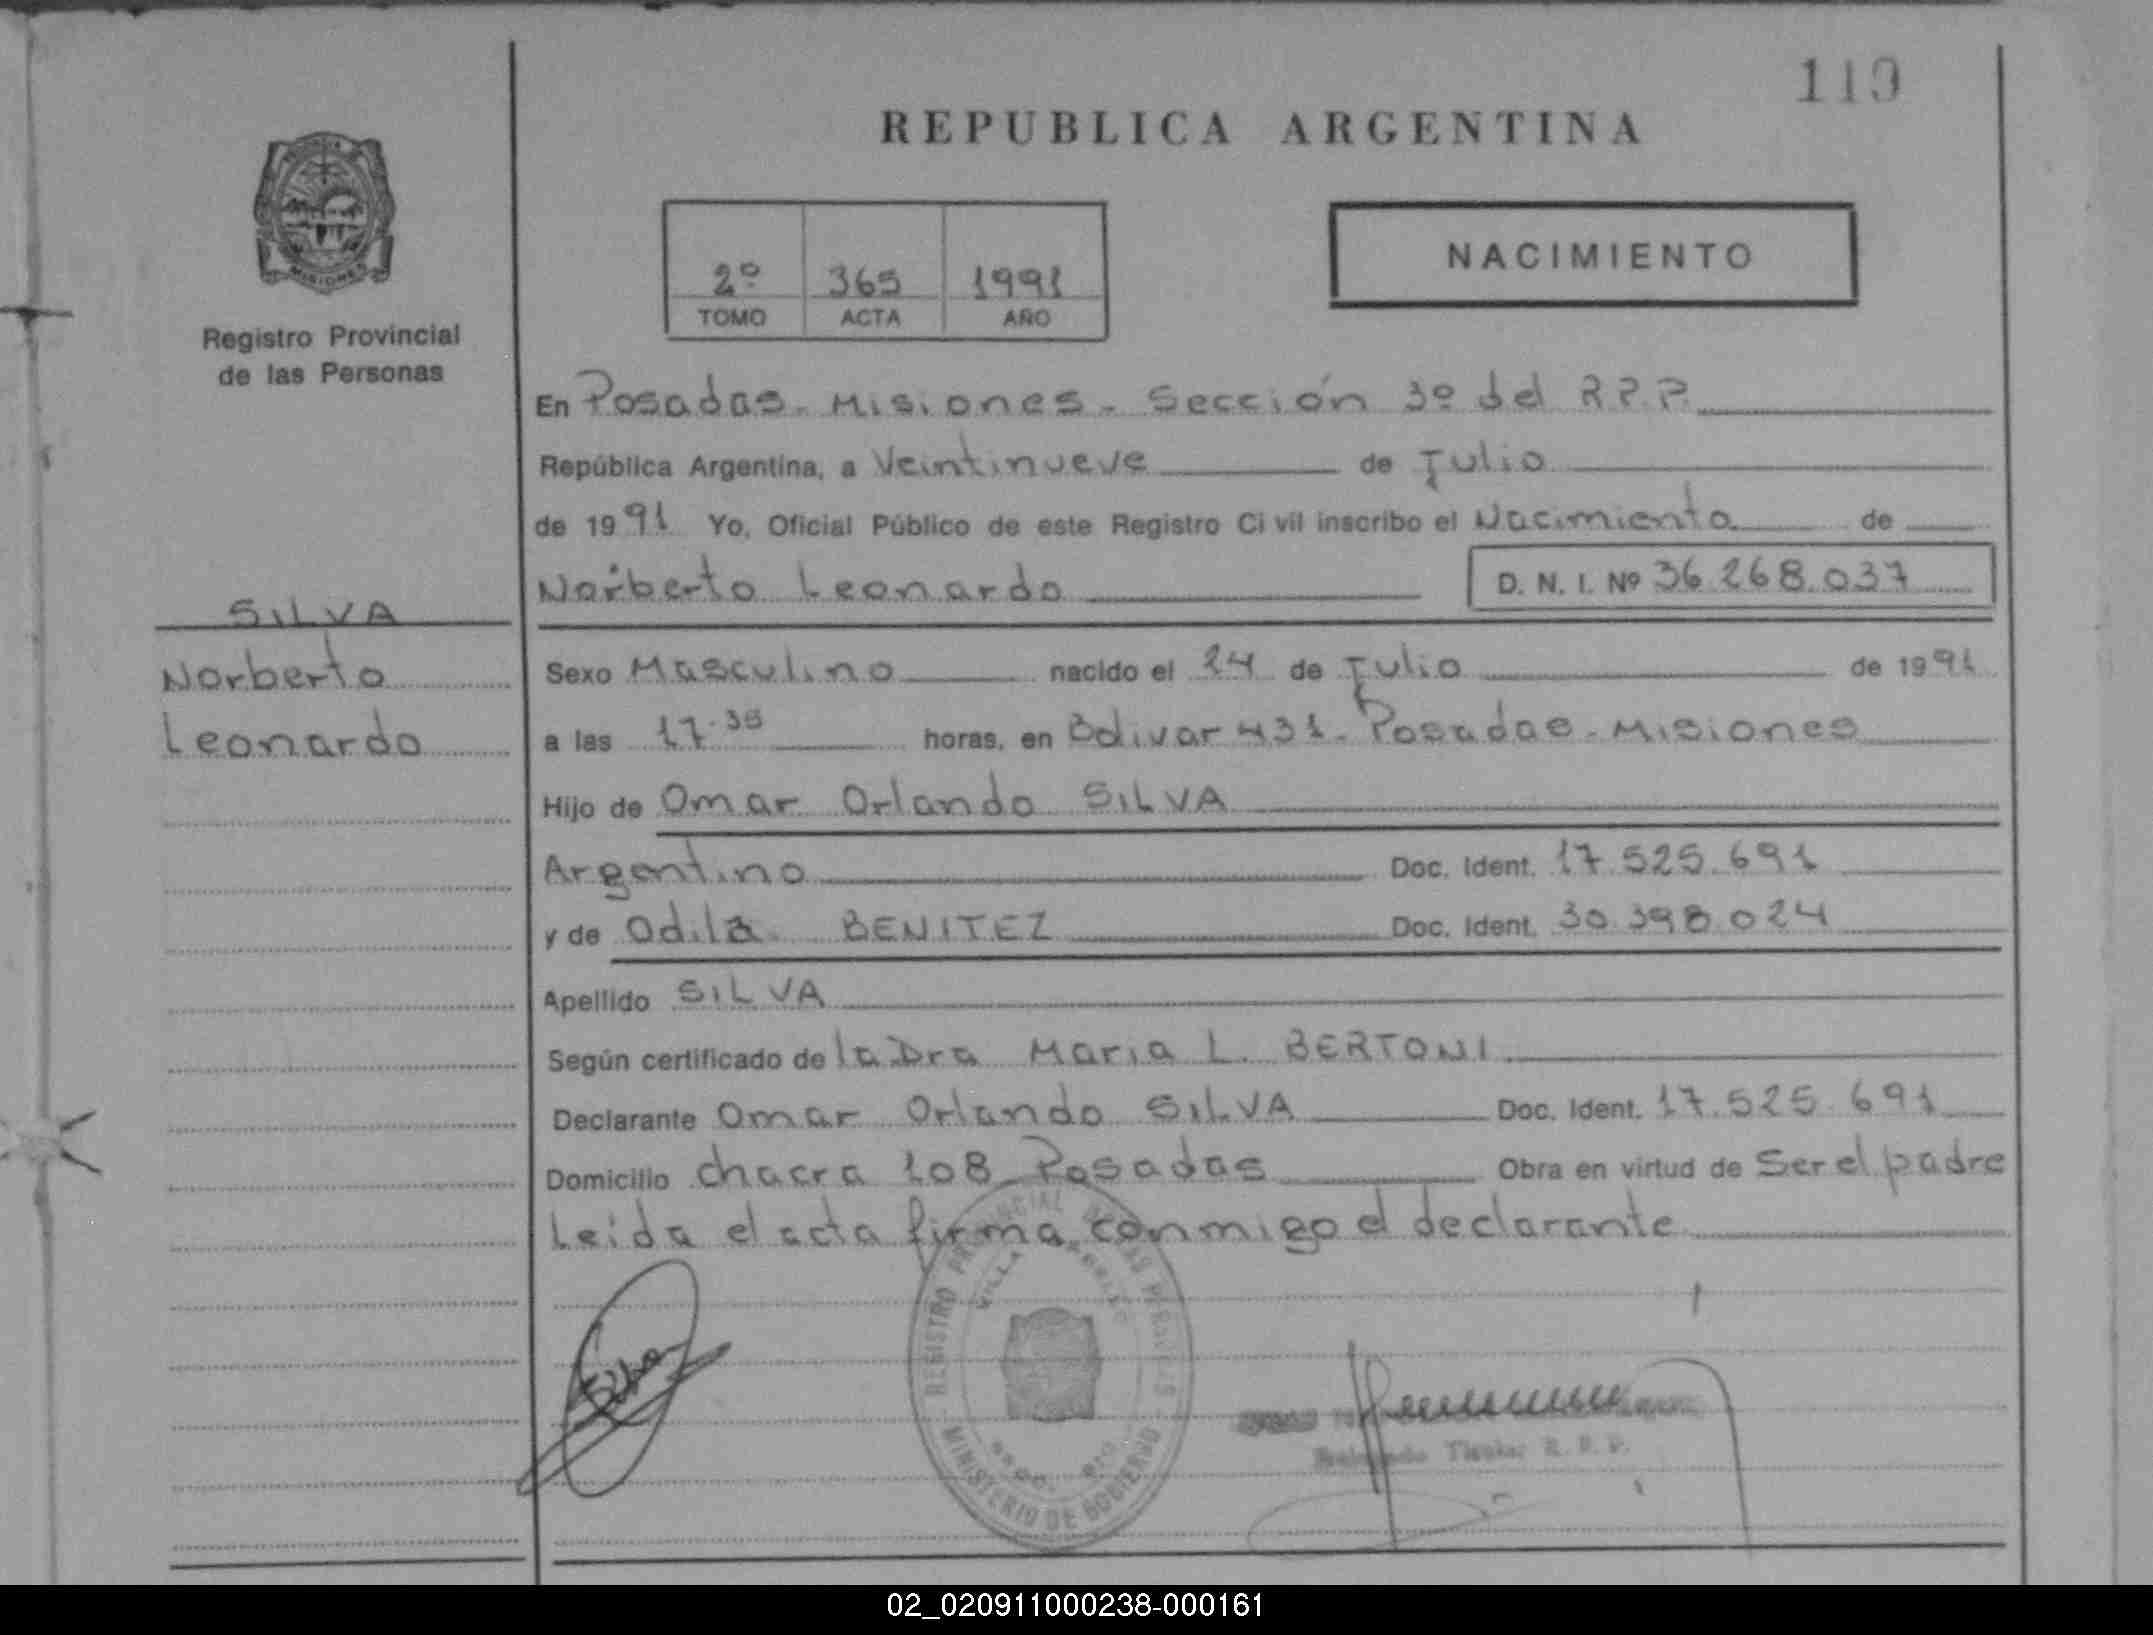 110
REPUBLICA ARGENTINA
MISIONES
Registro Provincial
de las Personas
2º 365 1991
TOMO ACTA AÑO
NACIMIENTO
En Posadas - Misiones - Sección 3º del R.P.P.
República Argentina, a Veintinueve de Julio
de 1991 Yo, Oficial Público de este Registro Civil inscribo el Nacimiento de
Norberto Leonardo D. N. I. Nº 36.268.037
SILVA
Norberto
Leonardo
Sexo Masculino nacido el 24 de Julio de 1991
a las 17.35 horas, en Bolivar 431 - Posadas - Misiones
Hijo de Omar Orlando SILVA
Argentino Doc. Ident. 17.525.691
y de Odila BENITEZ Doc. Ident. 30.398.024
Apellido SILVA
Según certificado de la Dra Maria L. BERTONI
Declarante Omar Orlando SILVA Doc. Ident. 17.525.691
Domicilio chacra 108 Posadas Obra en virtud de Ser el padre
Leída el acta firma conmigo el declarante
REGISTRO PROVINCIAL DE LAS PERSONAS
VILLA
MINISTERIO DE GOBIERNO
Silva
Titular R. P. P.
02_020911000238-000161